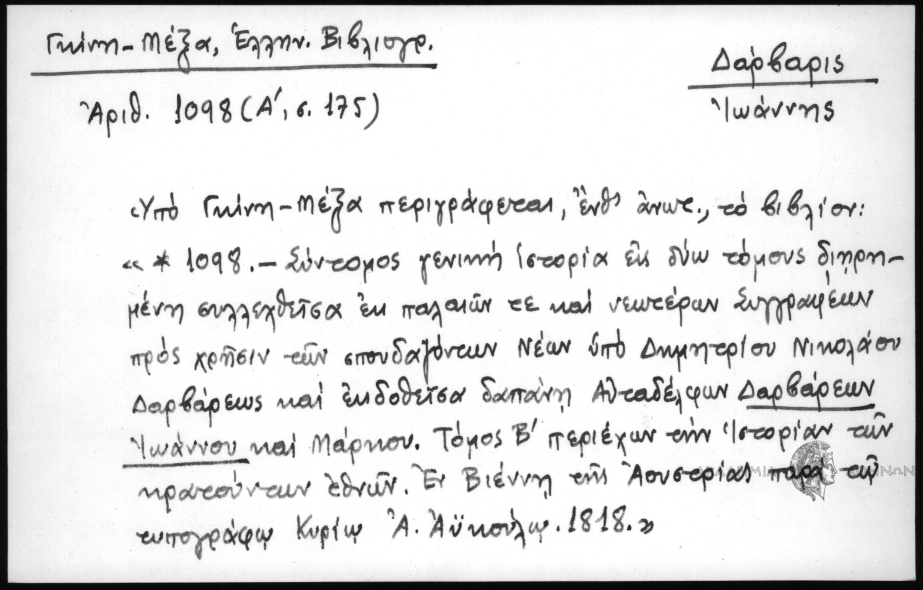 Γκίνη-Μέξα, Ἑλλην. Βιβλιογρ.
Δάρβαρις
Ἀριθ. 1098 (Α΄, σ. 175)
Ἰωάννης
Ὑπό Γκίνη-Μέξα περιγράφεται, ἔνθ' ἀνωτ., τό βιβλίον:
«* 1098. — Σύντομος γενική ἱστορία εἰς δύω τόμους διῃρη-
μένη συλλεχθεῖσα ἐκ παλαιῶν τε καί νεωτέρων Συγγραφέων
πρός χρῆσιν τῶν σπουδαζόντων Νέων ὑπό Δημητρίου Νικολάου
Δαρβάρεως καί ἐκδοθεῖσα δαπάνῃ Αὐταδέλφων Δαρβάρεων
Ἰωάννου καί Μάρκου. Τόμος Β' περιέχων τήν Ἱστορίαν τῶν
κρατούντων ἐθνῶν. Ἐν Βιέννῃ τῆς Ἀουστρίας παρά τῷ
τυπογράφῳ Κυρίῳ Ἀ. Ἀϋκούλῳ. 1818.»